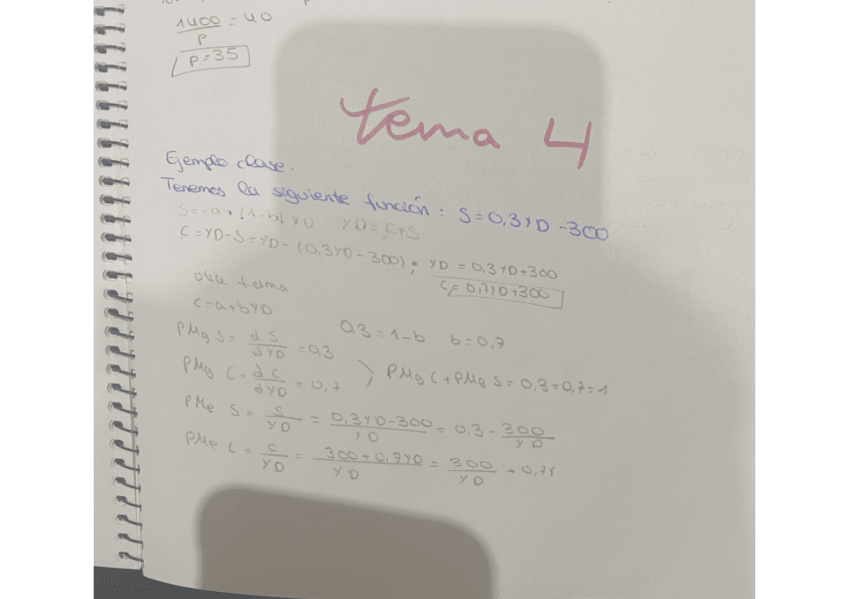 1400/P = 40
P=35
tema 4
Ejemplo clase.
Tenemos la siguiente función: S=0,3YD-300
S=-a+(1-b)YD YD=C+S
C=YD-S=YD-(0,3YD-300) = YD = 0,3YD+300
C=0,7YD+300
otra forma
C=a+bYD
0,3=1-b b=0,7
PMg S = dS/dYD = 0,3
PMg C = dC/dYD = 0,7 > PMg C + PMg S = 0,3=0,7=1
PMe S = S/YD = 0,3YD-300/YD = 0,3 - 300/YD
PMe C = C/YD = 300+0,7YD/YD = 300/YD + 0,7